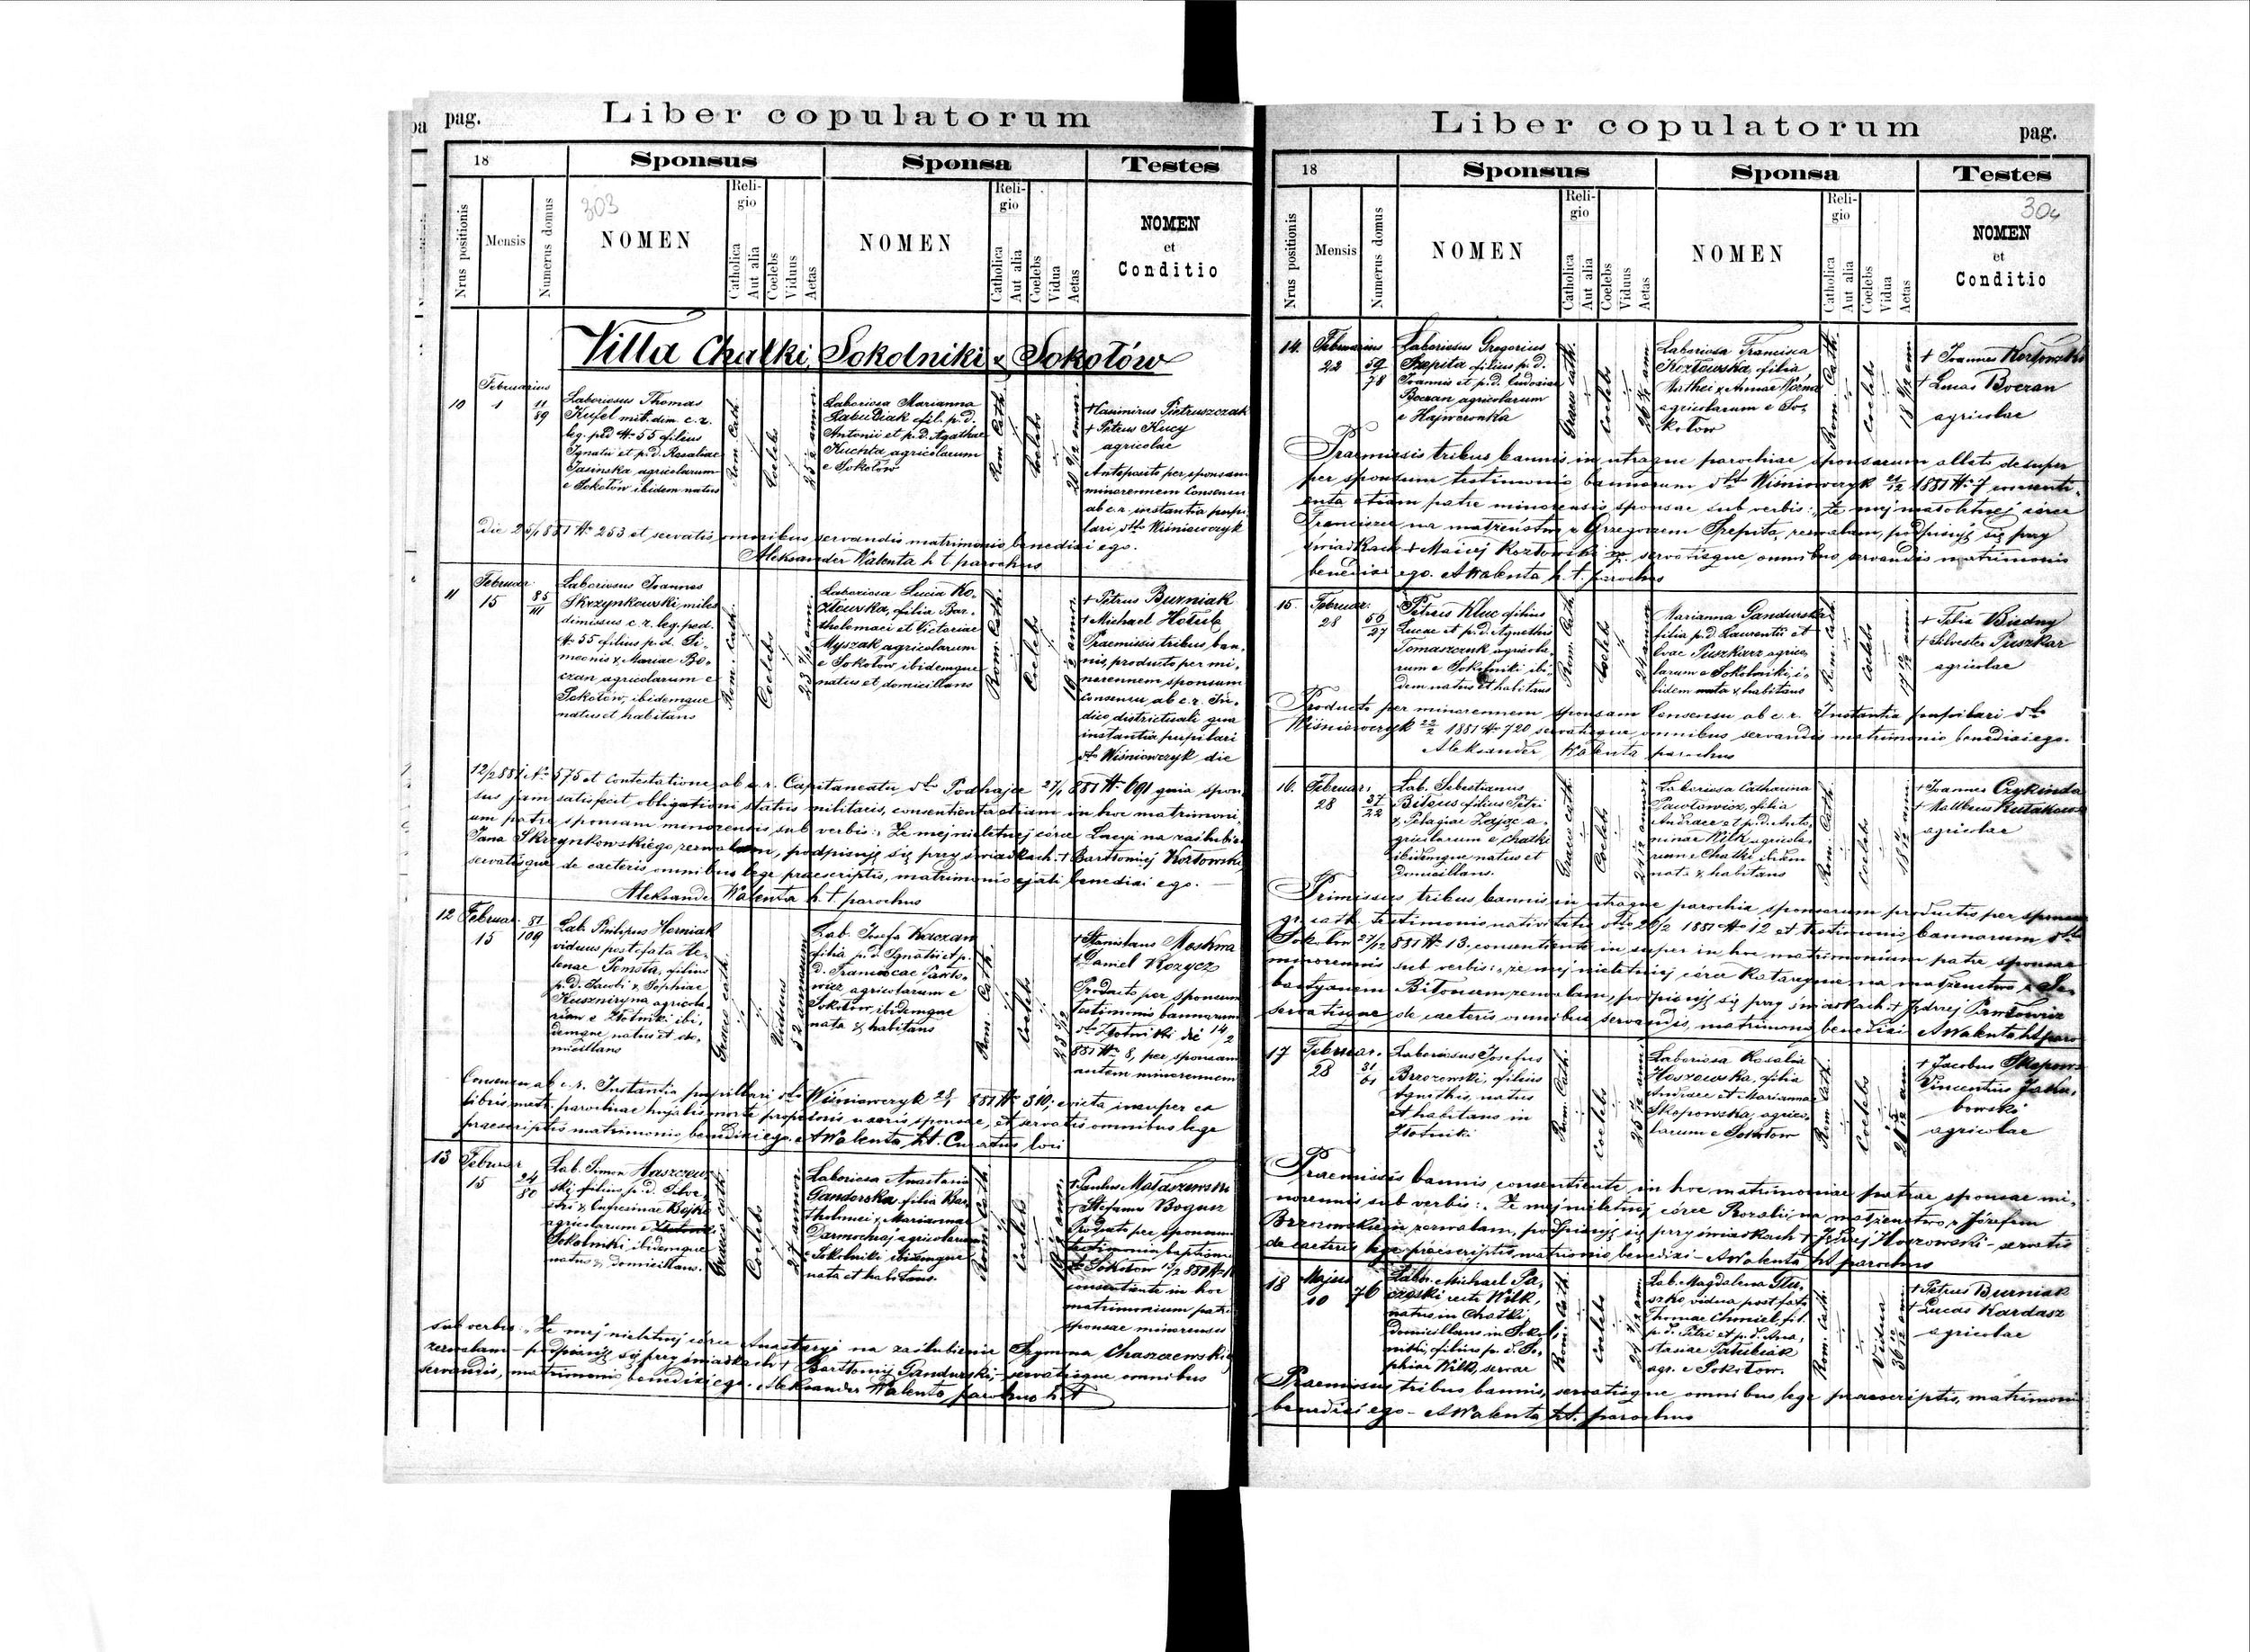 pag.
Liber copulatorum
18
Sponsus
Sponsa
Testes
Nrus positionis
Mensis
Numerus domus
303
NOMEN
Religio
Catholica
Aut alia
Coelebs
Viduus
Aetas
NOMEN
Religio
Catholica
Aut alia
Coelebs
Vidua
Aetas
NOMEN
et
Conditio
Villa Chatki, Sokolniki & Sokołów
10
Februarius
1
11
89
Laboriosus Thomas
Kufel mil. dim. c. r.
leg. ped. No 55 filius
Ignatii et p. d. Rosaliae
Jasinska agricolarum
e Sokołów ibidem natus
Rom. Cath.
Coelebs
Laboriosa Marianna
fil. p. d.
Antonii et p. d. Agathae
Kuchta agricolarum
e Sokołów
Rom. Cath.
Coelebs
+ Casimirus Pietruszczak
+ Petrus Kucy
agricolae
Anteposito per sponsam
minorennem Consensu
ab c. r. instantia pupi-
lari dto Wiśniowczyk
die 25/1 881 No 253 et servatis omnibus servandis matrimonio benedixi ego.
Aleksander Walenta h. t. parochus
11
Februar.
15
85
111
Laboriosus Joannes
Skrzynkowski, miles
dimissus c. r. leg. ped.
No 55 filius p. d. Si-
meonis & Mariae Bo-
czan agricolarum e
Sokołów, ibidemque
natus et habitans
Rom. Cath.
Coelebs
Laboriosa Lucia Ko-
złowska, filia Bar-
tholomaei et Victoriae
Myszak agricolarum
e Sokołow ibidemque
natus et domicilians
Rom. Cath.
Coelebs
+ Petrus Burniak
+ Michael Hołub
Praemissis tribus ban-
nis, producto per mi-
norennem sponsum
Consensu ab c. r. Ju-
dice districtuali qua
instantia pupilari
dto Wiśniowczyk die
12/2 881 No 575 et Contestatione ab c. r. Capitaneatu dto Podhajce 27/1 881 No 691 quia spon-
sus jam satisfecit obligationi status militaris, consentiente etiam in hoc matrimoni-
um patre sponsam minorensis sub verbis: „Że mej nieletnej córce Łucyi na zaślubieni
Jana Skrzynkowskiego zezwalam, podpisuję się przy świadkach + Bartłomiej Kozłowski,
servatisque de caeteris omnibus lege praescriptis, matrimonio benedixi ego. —
Aleksander Walenta h. t. parochus
12
Februar.
15
81
109
Lab. Philipus Horniak
viduus post fata He-
lenae Pomsta, filius
p. d. Jacobi & Sophiae
Kuszniryna agricola-
rum e Złotniki ibi-
demque natus et do-
micilians
Graeco cath.
Viduus
52 annorum
Lab. Josefa Kaczan
filia p. d. Ignatii et p.
d. Franciscae Pawło-
wicz, agricolarum e
Sokołów ibidemque
nata & habitans
Rom. Cath.
Coelebs
+ Stanislaus Moskwa
+ Daniel Kozycz
Producto per sponsum
testimonio bannorum
dto Złotniki die 14/2
881 No 8, per sponsam
autem minorennem
Consensu ab c. r. Instantia pupillari dto Wiśniowczyk 28/1 881 No 310; evicta insuper ex
libris metr. parochiae hujatis morte uxoris sponsae, et servatis omnibus lege
praescriptis matrimonio benedixi ego. AWalenta h. t. Curatus loci
13
Februar
15
24
80
Lab. Simon Haszczew-
ski filius p. d. Silve-
stri & Eufrosinae Bojko
agricolarum e
Sokolniki ibidemque
natus & domicilians.
Graeco cath.
Coelebs
Laboriosa Anastasia
Gandorska filia Bar-
tholomei & Mariannae
Darmochwaj agricolarum
e Sokolniki ibidemque
nata et habitans.
Rom. Cath.
Coelebs
+ Paulus Mataszewski
+ Stefanus Bogusz
Producto per sponsum
testimonio baptismi
dto Sokołow 13/2 881 No
consentiente in hoc
matrimonium patre
sponsae minorensis
sub verbis: „Że mej nieletnej córce Anastazyi na zaślubienie Szymona Chaszczewskiego
zezwalam podpisuję się przy świadkach + Bartłomiej Gandurski, — servatisque omnibus
servandis, matrimonio benedixi ego. Aleksander Walenta, parochus h. t.
Liber copulatorum
pag.
18
Sponsus
Sponsa
Testes
Nrus positionis
Mensis
Numerus domus
NOMEN
Religio
Catholica
Aut alia
Coelebs
Viduus
Aetas
NOMEN
Religio
Catholica
Aut alia
Coelebs
Vidua
Aetas
304
NOMEN
et
Conditio
14.
Februarius
22
59
78
Laboriosus Gregorius
Przepita filius p. d.
Joannis et p. d. Eudosiae
Boczan agricolarum
e Hajworonka
Graeco cath.
Coelebs
Laboriosa Francisca
Kozłowska, filia
Mathei & Annae Woźna
agricolarum e So-
kołow
Rom. Cath.
Coelebs
+ Joannes Kozłowski
+ Lucas Boczan
agricolae
Praemissis tribus bannis in utraque parochiae sponsarum allato desuper
per sponsum testimonio bannorum dto Wiśniowczyk 21/2 1881 No 7 consenti-
ente etiam patre minorensis sponsae sub verbis: „Że mej małoletniej córce
Franciszce na małżeństwo z Grzegorzem Przepita zezwalam, podpisuję się przy
świadkach + Maciej Kozłowski servatisque omnibus servandis matrimonio
benedixi ego. AWalenta h. t. parochus
15.
Februar.
28
50
27
Petrus Kluc filius
Lucae et p. d. Agnethis
Tomaszczuk agricola-
rum e Sokolniki ibi-
dem natus et habitans
Rom. Cath.
Coelebs
Marianna Gandurska
filia p. d. Laurentii et
Evae Puszkarz agrico-
larum e Sokolniki, i-
bidem nata & habitans
Rom. Cath.
Coelebs
+ Felix Biedny
+ Silvester Puszkar
agricolae
Producto per minorennem sponsam Consensu ab c. r. Instantia pupilari dto
Wiśniowczyk 22/2 1881 No 720 servatisque omnibus servandis matrimonio benedixi ego.
Aleksander Walenta parochus
16.
Februar.
28
37
22
Lab. Sebastianus
Bitous filius Petri
& Pelagiae Zając a-
gricolarum e Chatki
ibidemque natus et
domicilians.
Graeco cath.
Coelebs
Laboriosa Catharina
Pawłowicz, filia
Andreae et p. d. Anto-
ninae Wilk agricola-
rum e Chatki ibidem
nata & habitans
Rom. Cath.
Coelebs
+ Joannes Czykinda
+ Mattheus Rutakowski
agricolae
Primissis tribus bannis in utraque parochia sponsorum productis per sponsum
gr. cath. testimonio nativitatis dto 26/2 1881 No 12 et testimonio bannorum dto
Sokołow 27/2 881 No 13, consentiente in super in hoc matrimonium patre sponsae
minorennis sub verbis: „że mej nieletniej córce Katarzynie na małżenstwo z Se-
bastyanem Bitousem zezwalam, podpisuję się przy świadkach + Jędrzej Pawłowicz
servatisque de caeteris omnibus servandis, matrimonio benedixi AWalenta h. t. paro
17
Februar.
28
31
61
Laboriosus Josefus
Brzozowski, filius
Agnethis, natus
et habitans in
Złotniki
Rom. Cath.
Coelebs
Laboriosa Rosalia
Hoszowska, filia
Andreae et Mariannae
Skopowska, agrico-
larum e Sokołow
Rom Cath.
Coelebs
+ Jacobus Skopows
Vincentius Jaku-
bowski
agricolae
Praemissis bannis consentiente in hoc matrimoniae patrae sponsae mi-
norennis sub verbis: „Że mej nieletniej córce Rozalii, na małżenstwo z Józefem
Brzozowskim zezwalam, podpisuję się przy świadkach + Jędrzej Hoszowski — servatis
de caeteris lege praescriptis matrionio benedixi — AWalenta ht parochus
18
Majus
10
76
Labor. Michael Pa-
recte Wilk,
natus in Chatki
domicilians in Soko-
niki, filius p. d. So-
phiae Wilk, servae
Rom. Cath.
Coelebs
Lab. Magdalena Głu-
szko, vidua post fata
Thomae Chmiel, fil.
p. d. Petri et p. d. Ana-
stasiae
agr. e Sokołow.
Rom. Cath.
Vidua
+ Petrus Burniak
+ Lucas Kardasz
agricolae
Praemissis tribus bannis, servatisque omnibus lege praescriptis, matrimonio
benedixi ego — AWalenta ht. parochus